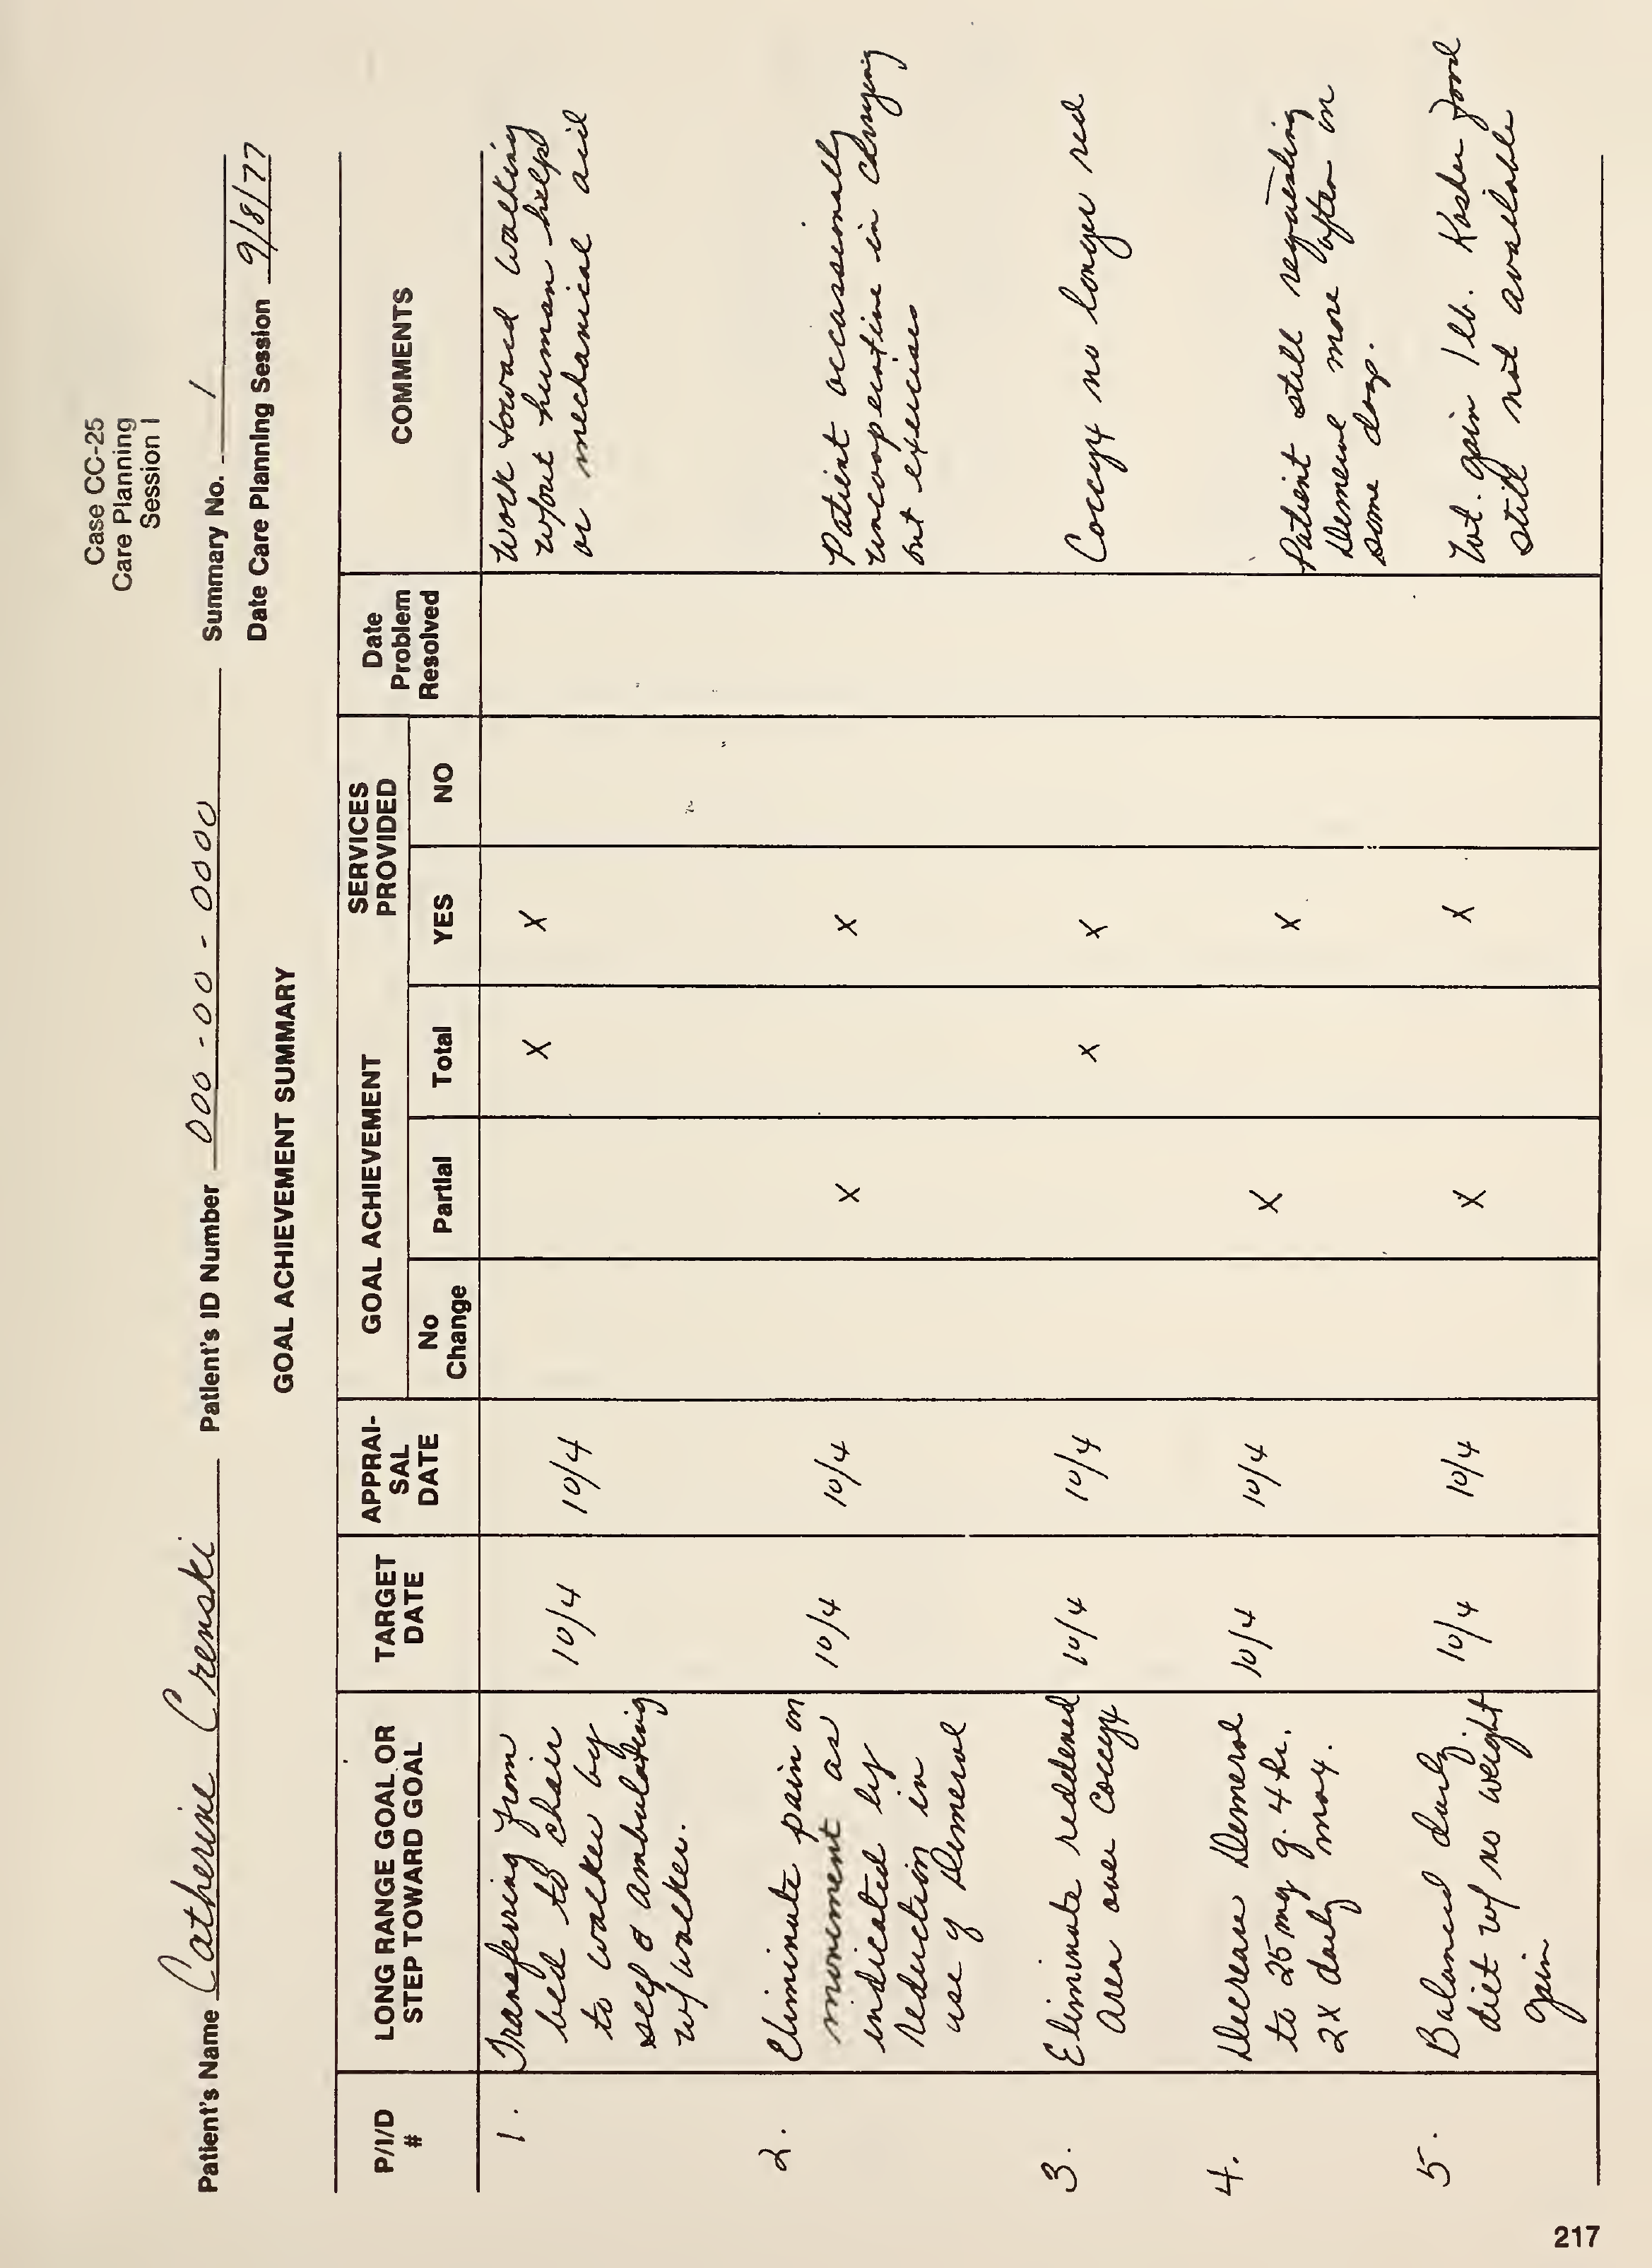 Case CC-25
Care Planning
Session I
Patient's Name Catherine Crenski Patient's ID Number 000-00-0000 Summary No. 1
Date Care Planning Session 9/8/77
GOAL ACHIEVEMENT SUMMARY
P/I/D
#
LONG RANGE GOAL OR
STEP TOWARD GOAL
TARGET
DATE
APPRAI-
SAL
DATE
GOAL ACHIEVEMENT
No
Change
Partial
Total
SERVICES
PROVIDED
YES
NO
Date
Problem
Resolved
COMMENTS
1.
Transferring from
bed to chair
to walker by
self & ambulating
w/ walker.
10/4
10/4
X
X
Work toward walking
w/out human help
or mechanical aid
2.
Eliminate pain on
movement as
indicated by
reduction in
use of Demerol
10/4
10/4
X
X
Patient occassionally
uncooperative in carrying
out exercises
3.
Eliminate reddened
area over Coccyx
10/4
10/4
X
X
Coccyx no longer red
4.
Decrease Demerol
to 25 mg q. 4 hr.
2x daily max.
10/4
10/4
X
X
Patient still requesting
Demerol more often in
some days.
5.
Balanced daily
diet w/ no weight
gain
10/4
10/4
X
X
Wt. gain 1 lb. Kosher food
still not available
217